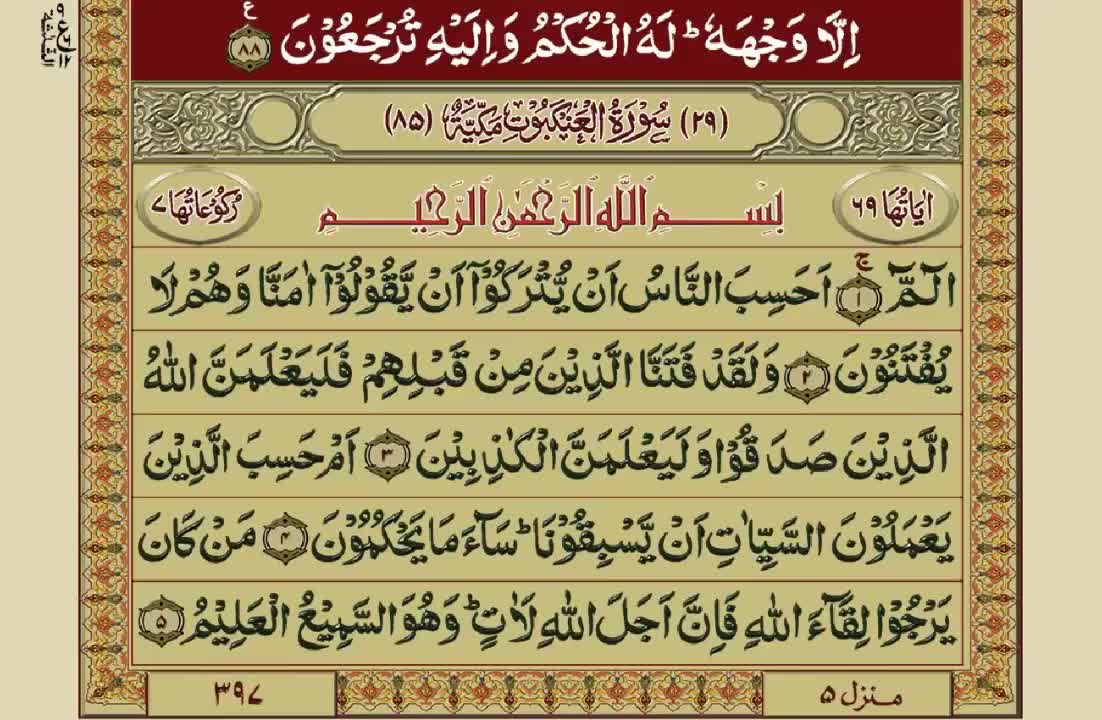 اِلَّا وَجْهَهٗ ؕ لَهُ الْحُكْمُ وَاِلَيْهِ تُرْجَعُوْنَ ﴿۸۸﴾ ع
(۲۹) سُوْرَةُ الْعَنْكَبُوْتِ مَكِّيَّةٌ (۸۵)
اٰيَاتُهَا ۶۹ بِسْمِ اللّٰهِ الرَّحْمٰنِ الرَّحِيْمِ رُكُوْعَاتُهَا ۷
الٓمّٓ ﴿۱﴾ ۚ اَحَسِبَ النَّاسُ اَنْ يُّتْرَكُوْۤا اَنْ يَّقُوْلُوْۤا اٰمَنَّا وَهُمْ لَا
يُفْتَنُوْنَ ﴿۲﴾ وَلَقَدْ فَتَنَّا الَّذِيْنَ مِنْ قَبْلِهِمْ فَلَيَعْلَمَنَّ اللّٰهُ
الَّذِيْنَ صَدَقُوْا وَلَيَعْلَمَنَّ الْكٰذِبِيْنَ ﴿۳﴾ اَمْ حَسِبَ الَّذِيْنَ
يَعْمَلُوْنَ السَّيِّاٰتِ اَنْ يَّسْبِقُوْنَا ؕ سَآءَ مَا يَحْكُمُوْنَ ﴿۴﴾ مَنْ كَانَ
يَرْجُوْا لِقَآءَ اللّٰهِ فَاِنَّ اَجَلَ اللّٰهِ لَاٰتٍ ؕ وَهُوَ السَّمِيْعُ الْعَلِيْمُ ﴿۵﴾
منزل ۵ ۳۹۷